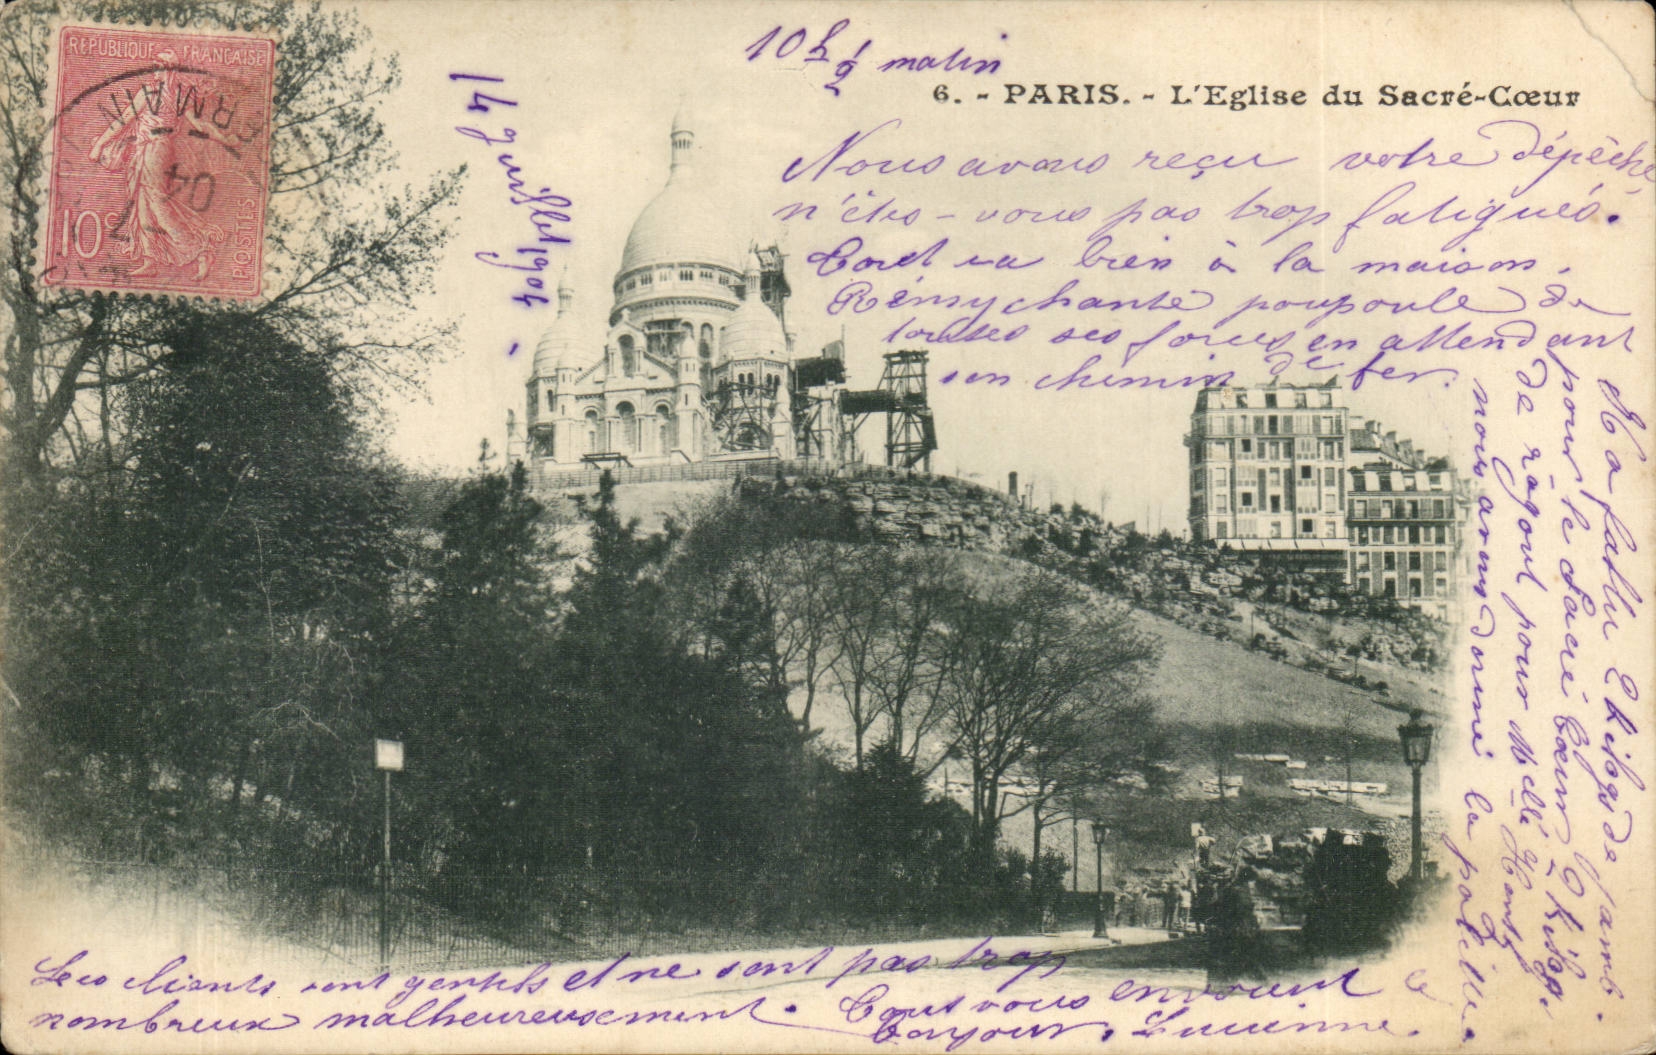 REPUBLIQUE FRANÇAISE
10c
POSTES
04
10 h 1/2 matin
14 juillet 1904.
6. - PARIS. - L'Eglise du Sacré-Cœur
Nous avons reçu votre dépêche
n'êtes-vous pas trop fatigués.
Tout va bien à la maison.
Rémy chante poupoule de
toutes ses forces en attendant
son chemin de fer.
Il a fallu 2 kilogs de jamb.
pour le Sacré Cœur 2 kilogs
de ragout pour Melle
nous avons donné la
Les clients sont gentils et ne sont pas trop
nombreux malheureusement. Tous vous envoient le
bonjour. Lucienne.